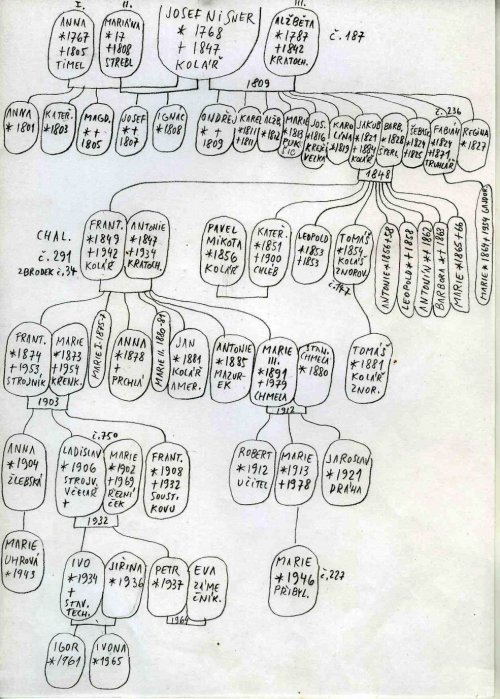 I.
ANNA
*1767
+1805
TIMEL
II.
MARIÁNA
*17
+1808
STREBL
JOSEF NISNER
* 1768
+ 1847
KOLÁŘ
III.
ALŽBĚTA
*1787
+1842
KRATOCH.
č.187
1809
ANNA
*1801
KATEŘ.
*1803
MAGD.
*+
1805
JOSEF
*+
1807
IGNÁC
*1808
ONDŘEJ
* +
1809
KAREL
*1811
+1811
ALŽB.
MARIE
*1813
JOS.
*1816
KAROLÍNA
*1819
JAKUB
*1821
+1884
KOLÁŘ
BARB.
*1828
ŠPERL
ŠEBEST.
*1824
+1825
č.236
FABIÁN
*1824
+1871
TRUHLÁŘ
REGINA
*1827
1848
CHAL.
č.291
ZBRODEK č.34
FRANT.
*1849
+1942
KOLÁŘ
ANTONIE
*1847
+1934
KRATOCH.
PAVEL
MIKOTA
*1856
KOLÁŘ
KATER.
*1851
+1900
CHLÉB
LEOPOLD
*1853
+1853
TOMÁŠ
*1854
KOLÁŘ
ZNOROV.
č.147
ANTONIE *1856+58
LEOPOLD *+1858
ANTONÍN * 1862
BARBORA * 1863
MARIE *1865+66
MARIE *1869+1954 GAJDOŠ
FRANT.
*1874
+1953
STROJNÍK
MARIE
*1873
+1954
KŘENK.
MARIE I. 1875-7
ANNA
*1878
+
PRCHLÁ
MARIE II. 1880-81
JAN
*1881
KOLÁŘ
AMER.
ANTONIE
*1885
MAZUREK
MARIE
III.
*1891
+1979
CHMELA
STAN.
CHMELA
*1880
TOMÁŠ
*1881
KOLÁŘ
ZNOR.
1903
1912
ANNA
*1904
ŽLEBSKÁ
LADISLAV
*1906
STROJV.
VČELAŘ
+
č.750
MARIE
*1902
+1969
ŘEZNÍČEK
FRANT.
*1908
+1932
SOUST.
KOVU
ROBERT
*1912
UČITEL
MARIE
*1913
+1978
JAROSLAV
*1921
DRÁHA
1932
MARIE
UHROVÁ
*1943
IVO
*1934
+
STAV.
TECH.
JIŘINA
*1936
PETR
*1937
EVA
ZÁMEČNÍK.
1964
MARIE
*1946
PŘIBYL.
č.227
IGOR
*1961
IVONA
*1965